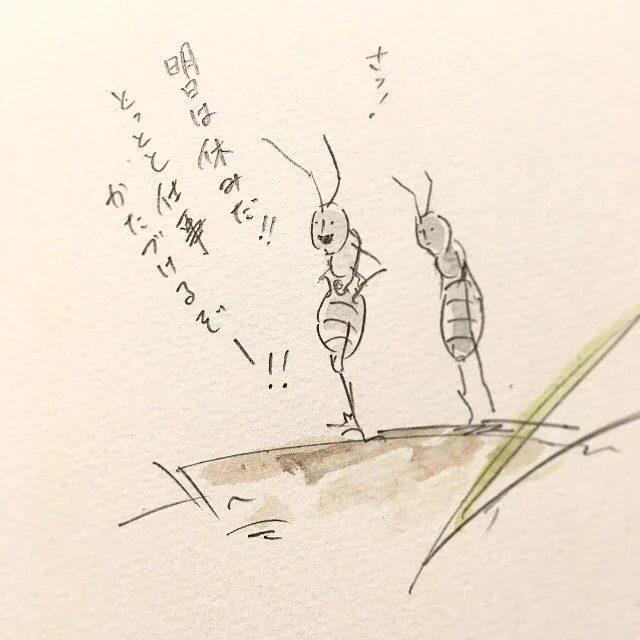 さっ！
明日は休みだ!!
とっとと仕事
かたづけるぞー!!